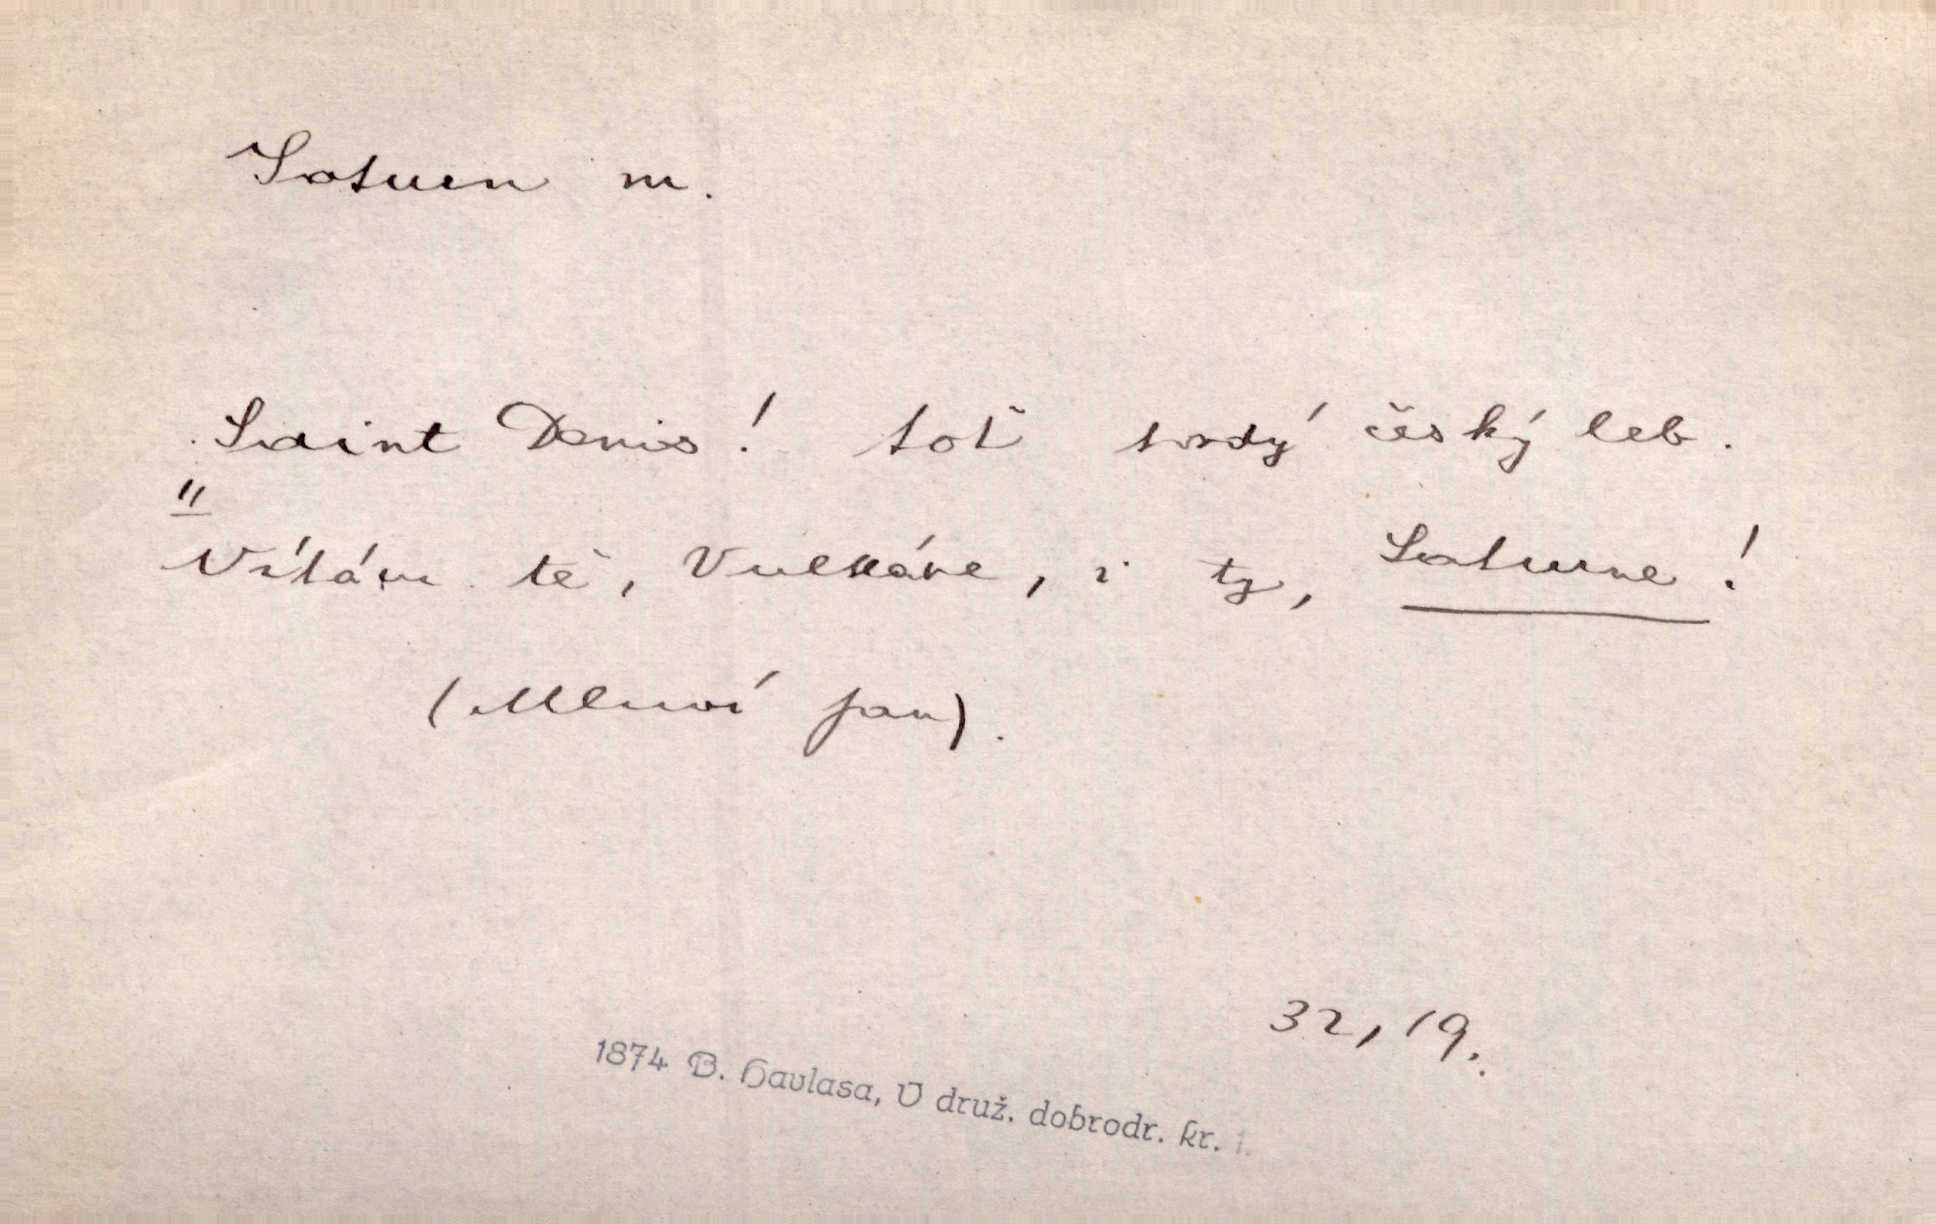 Saturn m.
Saint Denis! toť tvrdý český leb.
"
Vítám tě, Vulkáne, i ty, Saturne!
(Mluví pan).
32, 19.
1874 B. Havlasa, V druž. dobrodr. kr. 1.